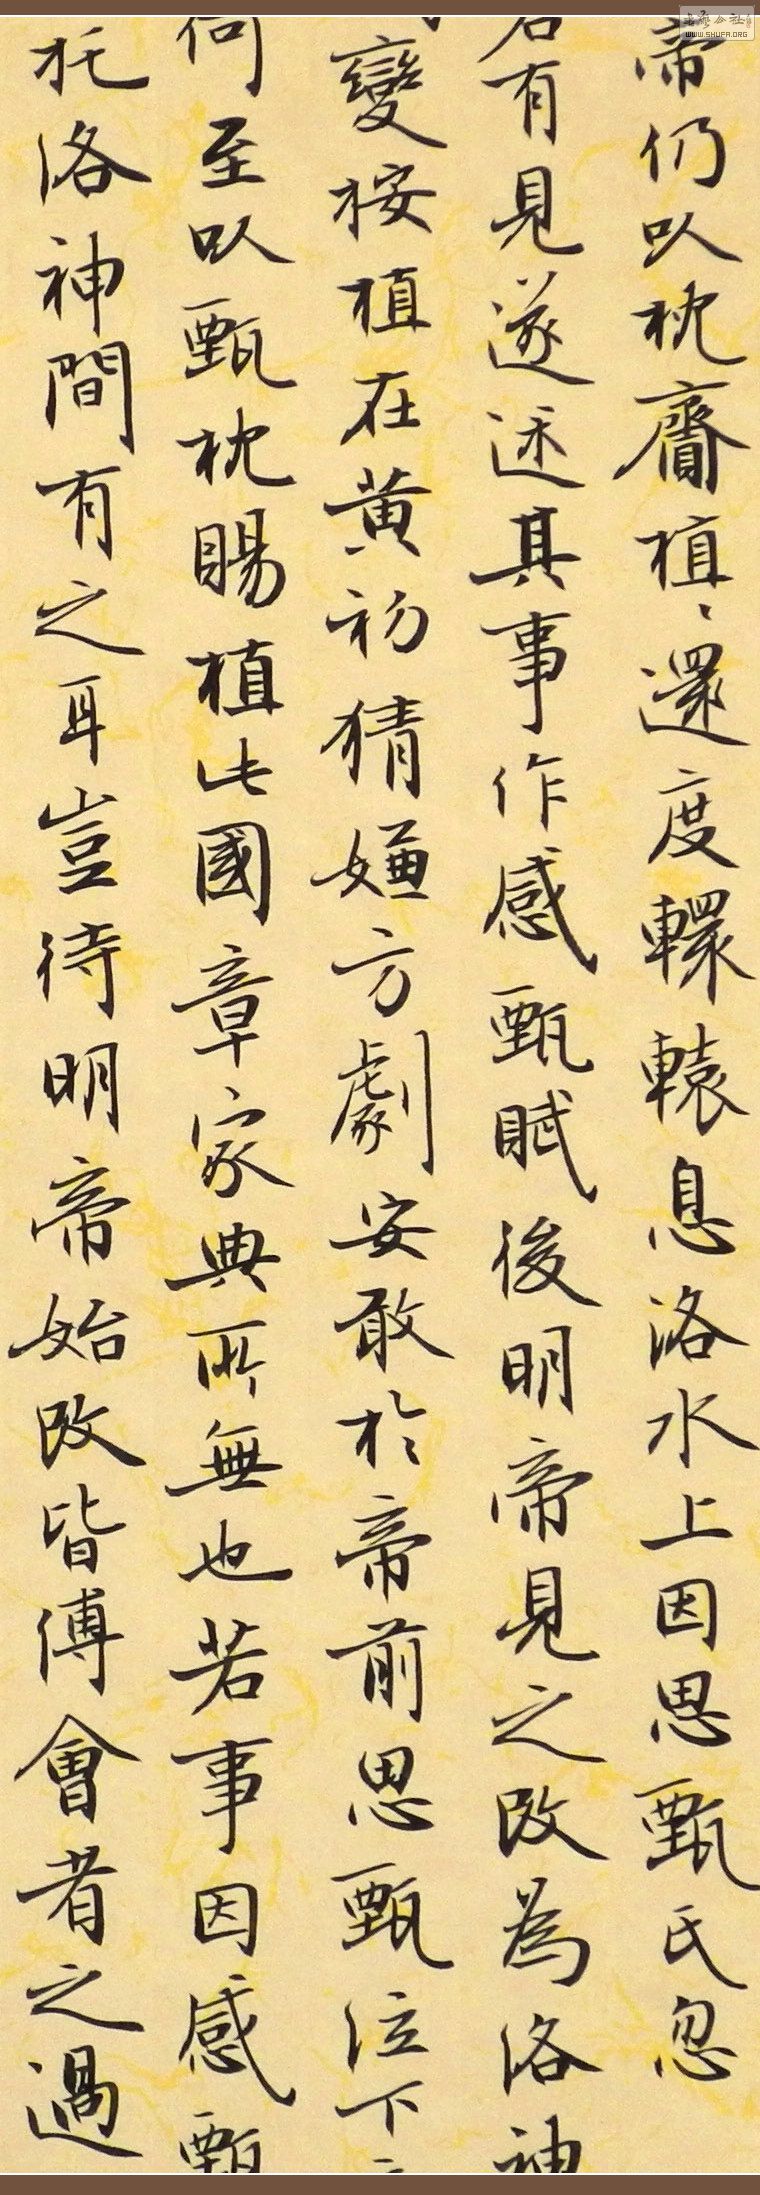 帝仍以枕齎植植還度轘轅息洛水上因思甄氏忽
若有見遂述其事作感甄賦後明帝見之改為洛神
變按植在黄初猜嫌方劇安敢於帝前思甄泣下
何至以甄枕賜植此國章家典所無也若事因感甄
托洛神間有之耳豈待明帝始改皆傅會者之過
WWW.SHUFA.ORG